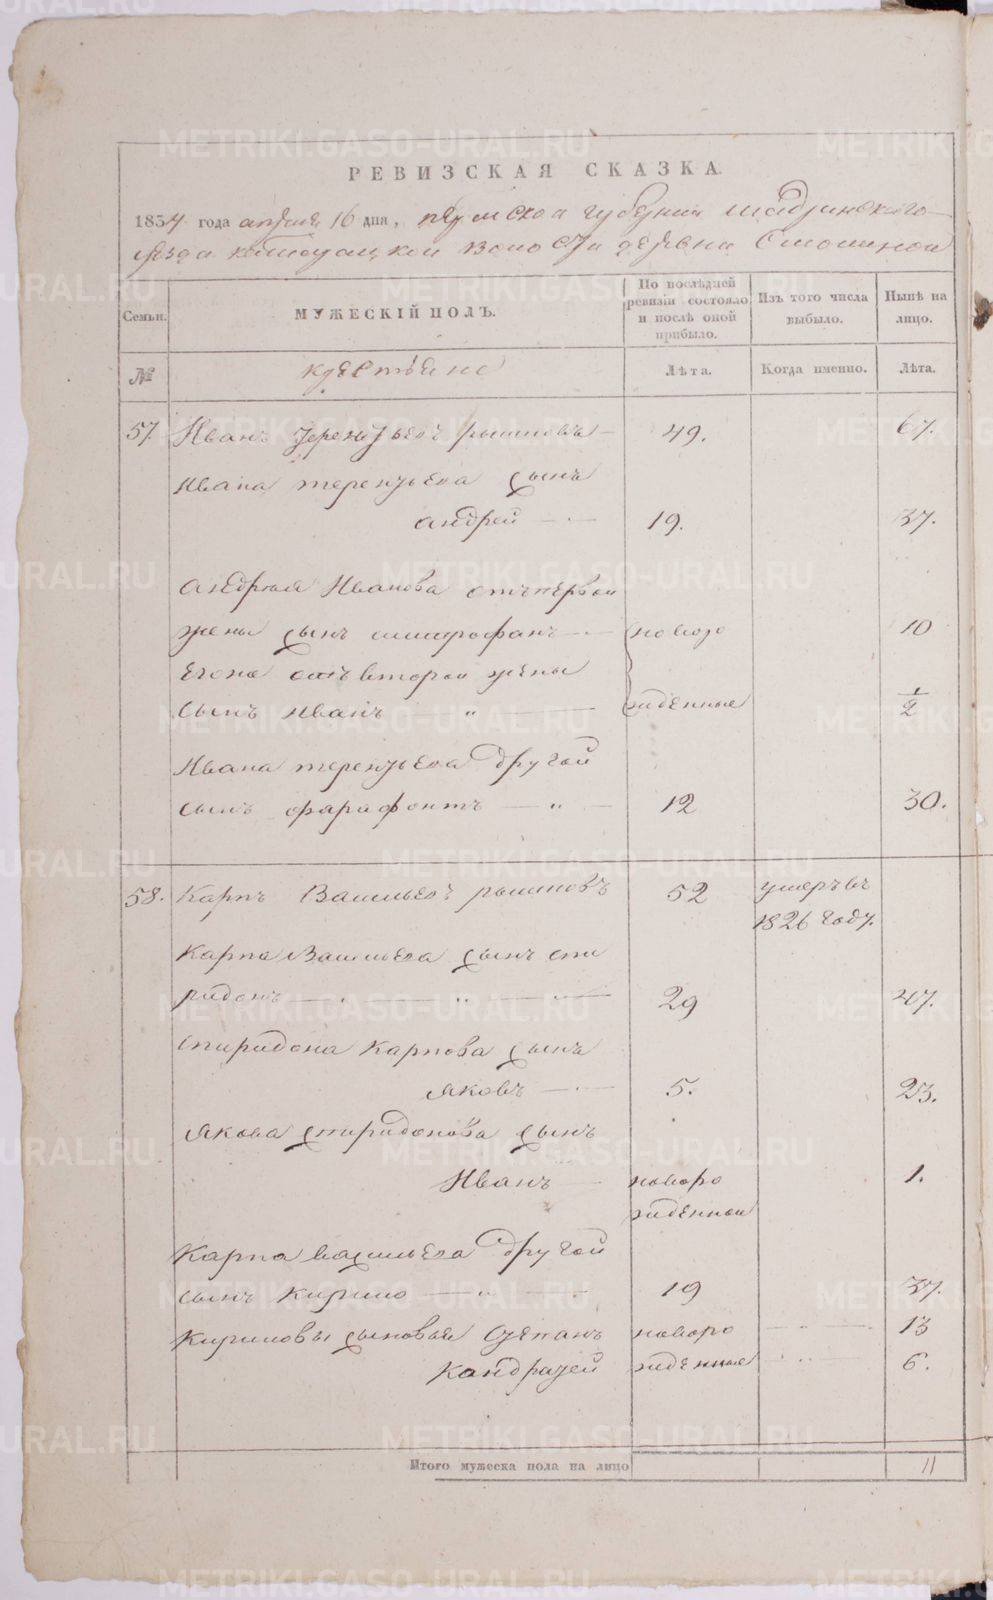 METRIKI.GASO-URAL.RU
РЕВИЗСКАЯ СКАЗКА.
1834 года апреля 16 дня, пермской губернии Шадринского
уезда волости деревни
Семьи.
МУЖЕСКІЙ ПОЛЪ.
По послѣдней ревизіи состояло и послѣ оной прибыло.
Изъ того числа выбыло.
Нынѣ на лицо.
№
крестьяне
Лѣта.
Когда именно.
Лѣта.
57. Иванъ Терентьевъ 49. 67.
Ивана терентьева сынъ
андрей 19. 37.
андрея Иванова отъ первой
жены сынъ митрофанъ новоро 10
Егоже отъ второй жены
сынъ Иванъ " жденные 1/2
Ивана терентьева другой
сынъ фарафонтъ " 12 30.
58. Карпъ Васильевъ 52 умеръ въ
1826 году.
Карпа Васильева сынъ спи
ридонъ 29 47.
спиридона Карпова сынъ
яковъ 5. 23.
якова спиридонова сынъ
Иванъ новоро 1.
жденной
Карпа васильева другой
сынъ Кирило 19 37.
Кириловы сыновья Степанъ новоро 13
Кандратей жденные 6.
Итого мужеска пола на лицо 11